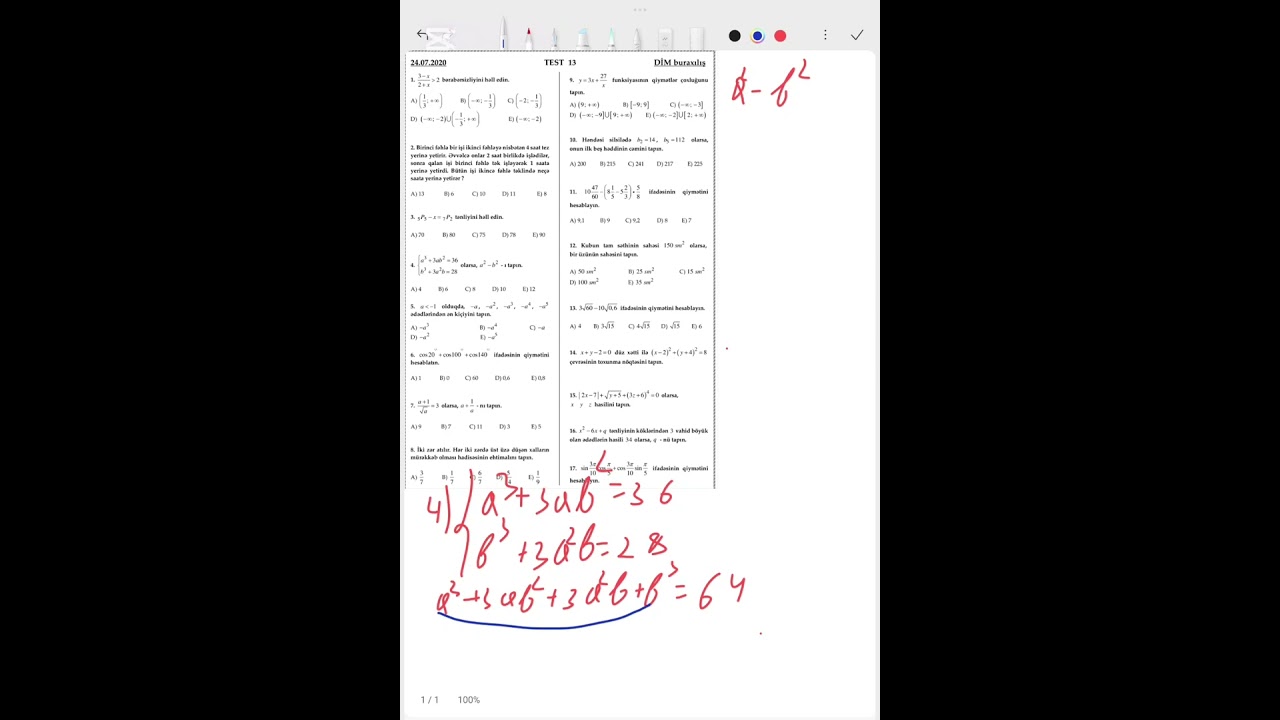 24.07.2020 TEST 13 DİM buraxılış
1. \frac{3-x}{2+x} > 2 bərabərsizliyini həll edin.
A) (\frac{1}{3}; +∞) B) (-∞; -\frac{1}{3}) C) (-2; -\frac{1}{3})
D) (-∞; -2)∪(-\frac{1}{3}; +∞) E) (-∞; -2)
2. Birinci fəhlə bir işi ikinci fəhləyə nisbətən 4 saat tez
yerinə yetirir. Əvvəlcə onlar 2 saat birlikdə işlədilər,
sonra qalan işi birinci fəhlə tək işləyərək 1 saata
yerinə yetirdi. Bütün işi ikinci fəhlə təklində neçə
saata yerinə yetirər ?
A) 13 B) 6 C) 10 D) 11 E) 8
3. ₅P₃ - x = ₇P₂ tənliyini həll edin.
A) 70 B) 80 C) 75 D) 78 E) 90
4. a³ + 3ab² = 36
b³ + 3a²b = 28 olarsa, a² - b² - ı tapın.
A) 4 B) 6 C) 8 D) 10 E) 12
5. a < -1 olduqda, -a, -a², -a³, -a⁴, -a⁵
ədədlərindən ən kiçiyini tapın.
A) -a³ B) -a⁴ C) -a
D) -a² E) -a⁵
6. cos20° + cos100° + cos140° ifadəsinin qiymətini
hesablatın.
A) 1 B) 0 C) 60 D) 0,6 E) 0,8
7. \frac{a+1}{\sqrt{a}} = 3 olarsa, a + \frac{1}{a} - nı tapın.
A) 9 B) 7 C) 11 D) 3 E) 5
8. İki zər atılır. Hər iki zərdə üst üzə düşən xalların
mürəkkəb olması hadisəsinin ehtimalını tapın.
A) \frac{3}{7} B) \frac{1}{7} \frac{6}{7} E) \frac{1}{9}
9. y = 3x + \frac{27}{x} funksiyasının qiymətlər çoxluğunu
tapın.
A) (9; +∞) B) [-9; 9] C) (-∞; -3]
D) (-∞; -9]∪[9; +∞) E) (-∞; -2]∪[2; +∞)
10. Həndəsi silsilədə b₂ = 14, b₅ = 112 olarsa,
onun ilk beş həddinin cəmini tapın.
A) 200 B) 215 C) 241 D) 217 E) 225
11. 10\frac{47}{60} - (8\frac{1}{5} - 5\frac{2}{3}) • \frac{5}{8} ifadəsinin qiymətini
hesablayın.
A) 9,1 B) 9 C) 9,2 D) 8 E) 7
12. Kubun tam səthinin sahəsi 150 sm² olarsa,
bir üzünün sahəsini tapın.
A) 50 sm² B) 25 sm² C) 15 sm²
D) 100 sm² E) 35 sm²
13. 3√60 - 10√0,6 ifadəsinin qiymətini hesablayın.
A) 4 B) 3√15 C) 4√15 D) √15 E) 6
14. x + y - 2 = 0 düz xətti ilə (x - 2)² + (y + 4)² = 8
çevrəsinin toxunma nöqtəsini tapın.
15. |2x - 7| + √y + 5 + (3z + 6)⁴ = 0 olarsa,
x y z hasilini tapın.
16. x² - 6x + q tənliyinin köklərindən 3 vahid böyük
olan ədədlərin hasili 34 olarsa, q - nü tapın.
17. sin\frac{3π}{10} cos\frac{π}{5} + cos\frac{3π}{10} sin\frac{π}{5} ifadəsinin qiymətini
hesablayın.
a² - b²
4) a³ + 3ab² = 36
b³ + 3a²b = 28
a³ + 3ab² + 3a²b + b³ = 64
1 / 1 100%